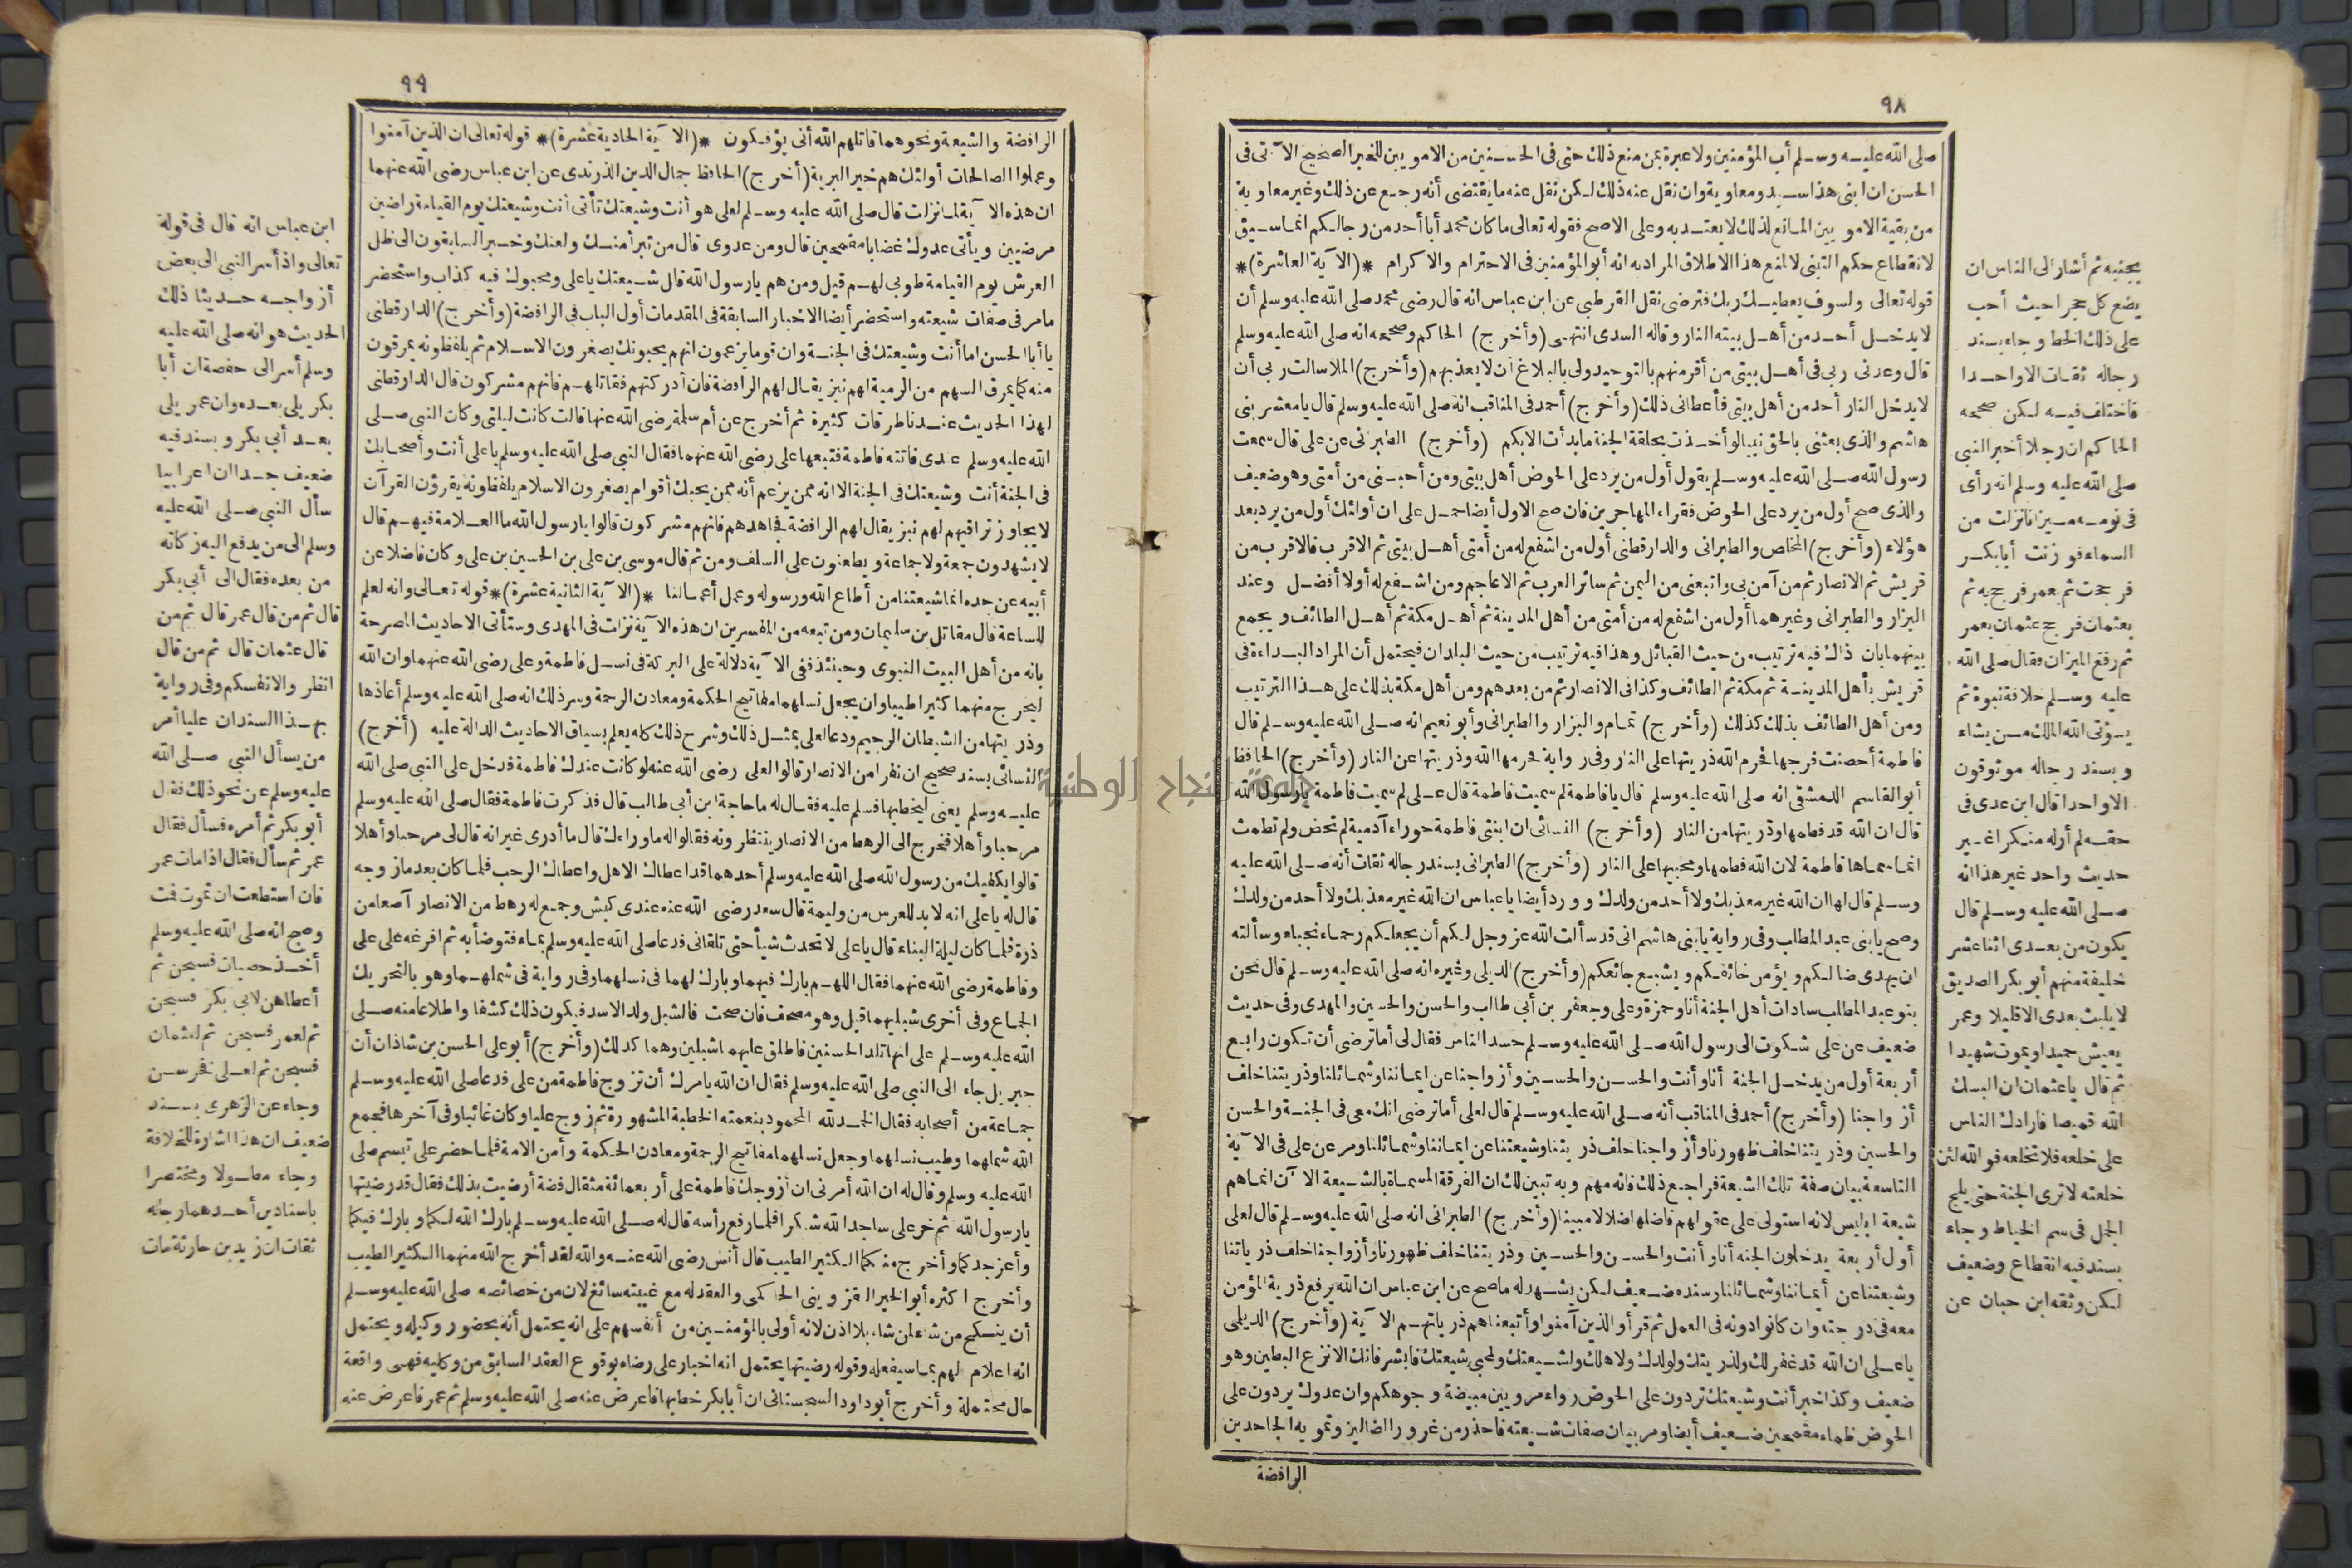 ٩٨
صلى الله عليه وسلم أب المؤمنين ولا عبرة بمن منع ذلك حتى فى الحسنين من الامويين للخبر الصحيح الآتى فى
الحسن ان ابنى هذا سيد ومعاوية وان نقل عنه ذلك لكن نقل عنه ما يقتضى أنه رجع عن ذلك وغير معاوية
من بقية الامويين المانع لذلك لا يعتد به وعلى الاصح فقوله تعالى ما كان محمد أبا أحد من رجالكم انما سيق
لانقطاع حكم التبنى لا لمنع هذا الاطلاق المراد به انه أبو المؤمنين فى الاحترام والاكرام *(الآية العاشرة)*
قوله تعالى ولسوف يعطيك ربك فترضى نقل القرطبى عن ابن عباس انه قال رضى محمد صلى الله عليه وسلم أن
لا يدخل أحد من أهل بيته النار وقاله السدى انتهى (وأخرج) الحاكم وصححه انه صلى الله عليه وسلم
قال وعدنى ربى فى أهل بيتى من أقر منهم بالتوحيد ولى بالبلاغ أن لا يعذبهم (وأخرج) الملا سالت ربى أن
لا يدخل النار أحد من أهل بيتى فأعطانى ذلك (وأخرج) أحمد فى المناقب انه صلى الله عليه وسلم قال يا معشر بنى
هاشم والذى بعثنى بالحق نبيا لو أخذت بحلقة الجنة ما بدأت الا بكم (وأخرج) الطبرانى عن على قال سمعت
رسول الله صلى الله عليه وسلم يقول أول من يرد على الحوض أهل بيتى ومن أحبنى من أمتى وهو ضعيف
والذى صح أول من يرد على الحوض فقراء المهاجرين فان صح الاول أيضا حمل على ان أولئك أول من يرد بعد
هؤلاء (وأخرج) المخلص والطبرانى والدارقطنى أول من اشفع له من أمتى أهل بيتى ثم الاقرب فالاقرب من
قريش ثم الانصار ثم من آمن بى واتبعنى من اليمن ثم سائر العرب ثم الاعاجم ومن اشفع له أولا أفضل وعند
البزار والطبرانى وغيرهما أول من اشفع له من أمتى من أهل المدينة ثم أهل مكة ثم أهل الطائف ويجمع
بينهما بان ذاك فيه ترتيب من حيث القبائل وهذا فيه ترتيب من حيث البلدان فيحتمل أن المراد البداءة فى
قريش بأهل المدينة ثم مكة ثم الطائف وكذا فى الانصار ثم من بعدهم ومن أهل مكة بذلك على هذا الترتيب
ومن أهل الطائف بذلك كذلك (وأخرج) تمام والبزار والطبرانى وأبو نعيم انه صلى الله عليه وسلم قال
فاطمة أحصنت فرجها فحرم الله ذريتها على النار وفى رواية فحرمها الله وذريتها عن النار (وأخرج) الحافظ
أبو القاسم الدمشقى انه صلى الله عليه وسلم قال يا فاطمة لم سميت فاطمة قال على لم سميت فاطمة يا رسول الله
قال ان الله قد فطمها وذريتها من النار (وأخرج) النسائى ان ابنتى فاطمة حوراء آدمية لم تحض ولم تطمث
انما سماها فاطمة لان الله فطمها ومحبيها على النار (وأخرج) الطبرانى بسند رجاله ثقات أنه صلى الله عليه
وسلم قال لها ان الله غير معذبك ولا أحد من ولدك وورد أيضا يا عباس ان الله غير معذبك ولا أحد من ولدك
وصح يا بنى عبد المطلب وفى رواية يا بنى هاشم انى قد سألت الله عز وجل لكم أن يجعلكم رحماء نجباء وسألته
ان يهدى ضالكم ويؤمن خائفكم ويشبع جائعكم (وأخرج) الديلمى وغيره انه صلى الله عليه وسلم قال نحن
بنو عبد المطلب سادات أهل الجنة أنا وحمزة وعلى وجعفر بن أبى طالب والحسن والحسين والمهدى وفى حديث
ضعيف عن على شكوت الى رسول الله صلى الله عليه وسلم حسد الناس فقال لى أما ترضى أن تكون رابع
أربعة أول من يدخل الجنة أنا وأنت والحسن والحسين وأزواجنا عن ايماننا وشمائلنا وذريتنا خلف
أزواجنا (وأخرج) أحمد فى المناقب أنه صلى الله عليه وسلم قال لعلى أما ترضى انك معى فى الجنة والحسن
والحسين وذريتنا خلف ظهورنا وأزواجنا خلف ذريتنا وشيعتنا عن ايماننا وشمائلنا ومر عن على فى الآية
التاسعة بيان صفة تلك الشيعة فراجع ذلك فانه مهم وبه تبين لك ان الفرقة المسماة بالشيعة الآن انما هم
شيعة ابليس لانه استولى على عقولهم فاضلها ضلالا مبينا (وأخرج) الطبرانى انه صلى الله عليه وسلم قال لعلى
أول أربعة يدخلون الجنة أنا وأنت والحسن والحسين وذريتنا خلف ظهورنا وأزواجنا خلف ذرياتنا
وشيعتنا عن أيماننا وشمائلنا وسنده ضعيف لكن يشهد له ما صح عن ابن عباس ان الله يرفع ذرية المؤمن
معه فى درجته وان كانوا دونه فى العمل ثم قرأ والذين آمنوا وأتبعناهم ذرياتهم الآية (وأخرج) الديلمى
يا على ان الله قد غفر لك ولذريتك ولولدك ولاهلك ولشيعتك ولمحبى شيعتك فابشر فانك الانزع البطين وهو
ضعيف وكذا خبر أنت وشيعتك تردون على الحوض رواء مرويين مبيضة وجوهكم وان عدوك يردون على
الحوض ظماء مقمحين ضعيف أيضا ومر بيان صفات شيعته فاحذر من غرور الضالين وتمويه الجاحدين
الرافضة
بجنبه ثم أشار الى الناس ان
يضع كل حجرا حيث أحب
على ذلك الخط وجاء بسند
رجاله ثقات الا واحدا
فاختلف فيه لكن صححه
الحاكم ان رجلا أخبر النبى
صلى الله عليه وسلم انه رأى
فى نومه ميزانا نزلت من
السماء فوزنت أبا بكر
فرجحت ثم بعمر فرجح به ثم
بعثمان فرجح عثمان بعمر
ثم رفع الميزان فقال صلى الله
عليه وسلم خلافة نبوة ثم
يؤتى الله الملك من يشاء
وبسند رجاله موثوقون
الا واحدا قال ابن عدى فى
حقه لم أر له منكرا غير
حديث واحد غير هذا انه
صلى الله عليه وسلم قال
يكون من بعدى اثنا عشر
خليفة منهم أبو بكر الصديق
لا يلبث بعدى الا قليلا وعمر
يعيش حميدا ويموت شهيدا
ثم قال يا عثمان ان البسك
الله قميصا فارادك الناس
على خلعه فلا تخلعه فو الله لئن
خلعته لا ترى الجنة حتى يلج
الجمل فى سم الخياط وجاء
بسند فيه انقطاع وضعيف
لكن وثقه ابن حبان عن
٩٩
الرافضة والشيعة ونحوهما قاتلهم الله أنى يؤفكون *(الآية الحادية عشرة)* قوله تعالى ان الذين آمنوا
وعملوا الصالحات أولئك هم خير البرية (أخرج) الحافظ جمال الدين الذرندى عن ابن عباس رضى الله عنهما
ان هذه الآية لما نزلت قال صلى الله عليه وسلم لعلى هو أنت وشيعتك تأتى أنت وشيعتك يوم القيامة راضين
مرضيين ويأتى عدوك غضابا مقمحين قال ومن عدوى قال من تبرأ منك ولعنك وخبر السابقون الى ظل
العرش يوم القيامة طوبى لهم قيل ومن هم يا رسول الله قال شيعتك يا على ومحبوك فيه كذاب واستحضر
ما مر فى صفات شيعته واستحضر أيضا الاخبار السابقة فى المقدمات أول الباب فى الرافضة (وأخرج) الدارقطنى
يا أبا الحسن اما أنت وشيعتك فى الجنة وان قوما يزعمون انهم يحبونك يصغرون الاسلام ثم يلفظونه يمرقون
منه كما يمرق السهم من الرمية لهم نبز يقال لهم الرافضة فان أدركتهم فقاتلهم فانهم مشركون قال الدارقطنى
لهذا الحديث عندنا طرقات كثيرة ثم أخرج عن أم سلمة رضى الله عنها قالت كانت ليلتى وكان النبى صلى
الله عليه وسلم عندى فاتته فاطمة فتبعها على رضى الله عنهما فقال النبى صلى الله عليه وسلم يا على أنت وأصحابك
فى الجنة أنت وشيعتك فى الجنة الا انه ممن يزعم أنه ممن يحبك أقوام يصغرون الاسلام يلفظونه يقرؤن القرآن
لا يجاوز تراقيهم لهم نبز يقال لهم الرافضة فجاهدهم فانهم مشركون قالوا يا رسول الله ما العلامة فيهم قال
لا يشهدون جمعة ولا جماعة ويطعنون على السلف ومن ثم قال موسى بن على بن الحسين بن على وكان فاضلا عن
أبيه عن جده انما شيعتنا من أطاع الله ورسوله وعمل أعمالنا *(الآية الثانية عشرة)* قوله تعالى وانه لعلم
للساعة قال مقاتل بن سليمان ومن تبعه من المفسرين ان هذه الآية نزلت فى المهدى وستأتى الاحاديث المصرحة
بانه من أهل البيت النبوى وحينئذ ففى الآية دلالة على البركة فى نسل فاطمة وعلى رضى الله عنهما وان الله
ليخرج منهما كثيرا طيبا وان يجعل نسلهما مفاتيح الحكمة ومعادن الرحمة وسر ذلك انه صلى الله عليه وسلم أعاذها
وذريتها من الشيطان الرجيم ودعا لعلى بمثل ذلك وشرح ذلك كله يعلم بسياق الاحاديث الدالة عليه (أخرج)
النسائى بسند صحيح ان نفرا من الانصار قالوا لعلى رضى الله عنه لو كانت عندك فاطمة فدخل على النبى صلى الله
عليه وسلم يعنى ليخطبها فسلم عليه فقال له ما حاجة ابن أبى طالب قال فذكرت فاطمة فقال صلى الله عليه وسلم
مرحبا وأهلا فخرج الى الرهط من الانصار ينتظرونه فقالوا له ما وراءك قال ما أدرى غير انه قال لى مرحبا وأهلا
قالوا يكفيك من رسول الله صلى الله عليه وسلم أحدهما قد اعطاك الاهل واعطاك الرحب فلما كان بعد ما زوجه
قال له يا على انه لا بد للعرس من وليمة قال سعد رضى الله عنه عندى كبش وجمع له رهط من الانصار آصعا من
ذرة فلما كان ليلة البناء قال يا على لا تحدث شيأ حتى تلقانى فدعا صلى الله عليه وسلم بماء فتوضأ به ثم افرغه على على
وفاطمة رضى الله عنهما فقال اللهم بارك فيهما وبارك لهما فى نسلهما وفى رواية فى شملهما وهو بالتحريك
الجماع وفى أخرى شبليهما قيل وهو مصحف فان صحت فالشبل ولد الاسد فيكون ذلك كشفا واطلاعا منه صلى
الله عليه وسلم على انها تلد الحسنين فاطلق عليهما شبلين وهما كذلك (وأخرج) أبو على الحسن بن شاذان أن
جبريل جاء الى النبى صلى الله عليه وسلم فقال ان الله يامرك أن تزوج فاطمة من على فدعا صلى الله عليه وسلم
جماعة من أصحابه فقال الحمد لله المحمود بنعمته الخطبة المشهورة ثم زوج عليا وكان غائبا وفى آخرها فجمع
الله شملهما وطيب نسلهما وجعل نسلهما مفاتيح الرحمة ومعادن الحكمة وأمن الامة فلما حضر على تبسم صلى
الله عليه وسلم وقال له ان الله أمرنى ان أزوجك فاطمة على أربعمائة مثقال فضة أرضيت بذلك فقال قد رضيتها
يا رسول الله ثم خر على ساجدا لله شكرا فلما رفع رأسه قال له صلى الله عليه وسلم بارك الله لكما وبارك فيكما
وأعز جدكما وأخرج منكما الكثير الطيب قال أنس رضى الله عنه والله لقد أخرج الله منهما الكثير الطيب
وأخرج اكثره أبو الخير القزوينى الحاكمى والعقد له مع غيبته سائغ لان من خصائصه صلى الله عليه وسلم
أن ينكح من شاء لمن شاء بلا اذن لانه أولى بالمؤمنين من أنفسهم على انه يحتمل أنه بحضور وكيله ويحتمل
انه اعلام لهم بما سيفعله وقوله رضيتها يحتمل انه اخبار على رضاه بوقوع العقد السابق من وكليه فهى واقعة
حال محتملة وأخرج أبو داود السجستانى ان أبا بكر خطبها فاعرض عنه صلى الله عليه وسلم ثم عمر فاعرض عنه
ابن عباس انه قال فى قوله
تعالى واذ أسر النبى الى بعض
أزواجه حديثا ذلك
الحديث هو انه صلى الله عليه
وسلم أسر الى حفصة ان أبا
بكر يلى بعده وان عمر يلى
بعد أبى بكر وبسند فيه
ضعيف جدا ان اعرابيا
سأل النبى صلى الله عليه
وسلم الى من يدفع اليه زكاته
من بعده فقال الى أبى بكر
قال ثم من قال عمر قال ثم من
قال عثمان قال ثم من قال
انظر والانفسكم وفى رواية
بهذا السند ان عليا أمر
من يسأل النبى صلى الله
عليه وسلم عن نحو ذلك فقال
أبو بكر ثم أمره فسأل فقال
عمر ثم سأل فقال اذا مات عمر
فان استطعت ان تموت فمت
وصح انه صلى الله عليه وسلم
أخذ حصيات فسبحن ثم
أعطاهن لابى بكر فسبحن
ثم لعمر فسبحن ثم لعثمان
فسبحن ثم لعلى فخرسن
وجاء عن الزهرى بسند
ضعيف ان هذا اشارة للخلافة
وجاء مطولا ومختصرا
باسنادين أحدهما رجاله
ثقات ان زيد بن حارثة مات
جامعة النجاح الوطنية